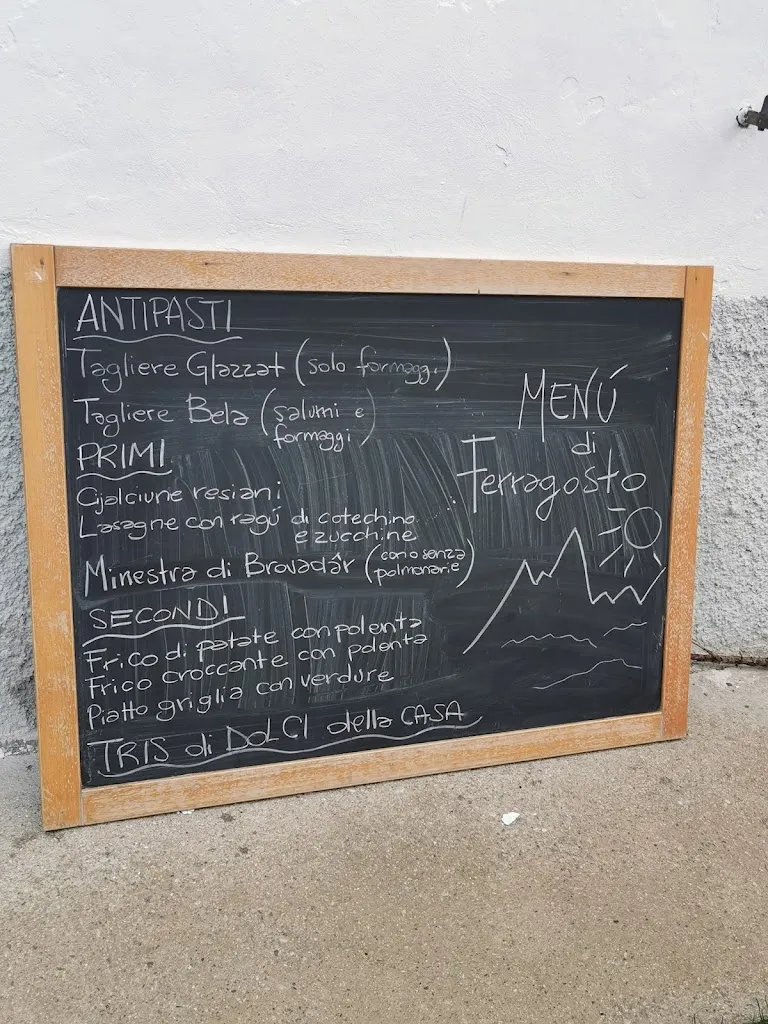 ANTIPASTI
Tagliere Glazzat (solo formaggi)
Tagliere Bela (salumi e
formaggi)
PRIMI
Cjalciune resiani
Lasagne con ragú di cotechino
e zucchine
Minestra di Brovadâr (con o senza
polmonarie)
SECONDI
Frico di patate con polenta
Frico croccante con polenta
Piatto griglia con verdure
TRIS di DOLCI della CASA
MENÚ
di
Ferragosto